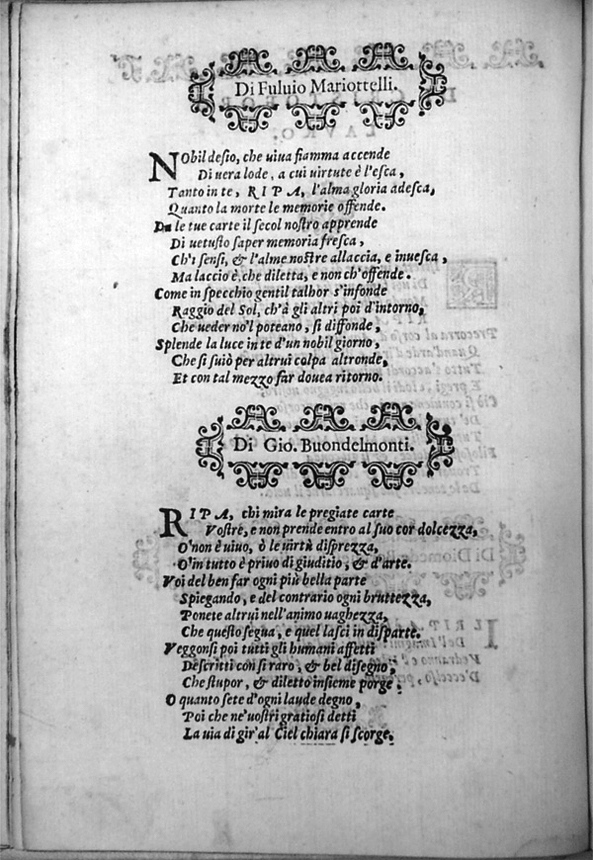 Di Fuluio Mariottelli.
NObil desio, che uiua fiamma accende
Di uera lode, a cui uirtute è l'esca,
Tanto in te, RIPA, l'alma gloria adesca,
Quanto la morte le memorie offende.
Da le tue carte il secol nostro apprende
Di uetusto saper memoria fresca,
Ch'i sensi, & l'alme nostre allaccia, e inuesca,
Ma laccio è, che diletta, e non ch'offende.
Come in specchio gentil talhor s'infonde
Raggio del Sol, ch'à gli altri poi d'intorno,
Che ueder no'l poteano, si diffonde,
Splende la luce in te d'un nobil giorno,
Che si suiò per altrui colpa altronde,
Et con tal mezzo far douea ritorno.
Di Gio. Buondelmonti.
RIPA, chi mira le pregiate carte
Vostre, e non prende entro al suo cor dolcezza,
O' non è uiuo, ò le uirtù disprezza,
O' in tutto è priuo di giuditio, & d'arte.
Voi del ben far ogni più bella parte
Spiegando, e del contrario ogni bruttezza,
Ponete altrui nell'animo uaghezza,
Che questo segua, e quel lasci in disparte.
Veggonsi poi tutti gli humani affetti
Descritti con si raro, & bel disegno,
Che stupor, & diletto insieme porge;
O quanto sete d'ogni laude degno,
Poi che ne'uostri gratiosi detti
La uia di gir'al Ciel chiara si scorge.